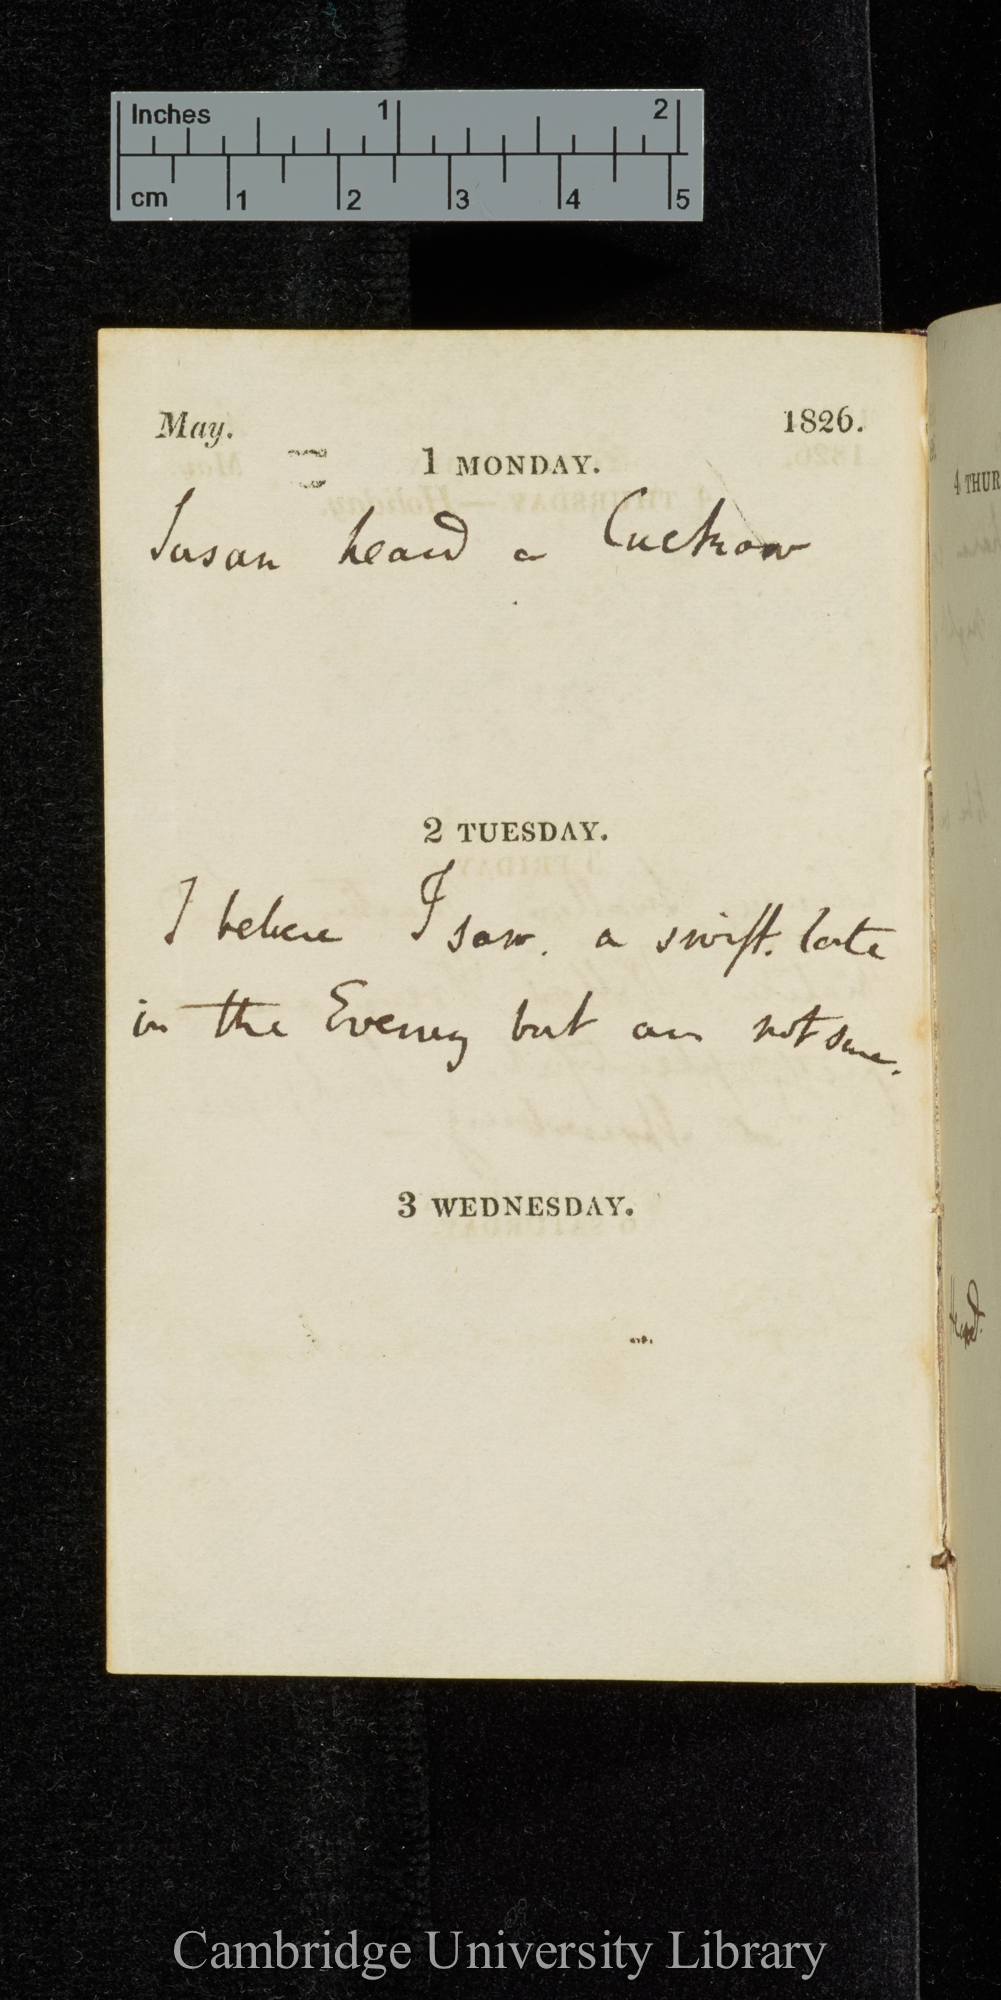 Inches 1 2
cm 1 2 3 4 5
May. 1826.
1 MONDAY.
Susan heard a Cuckow
2 TUESDAY.
I believe I saw. a swift. late
in the Evening but am not sure.
3 WEDNESDAY.
4 THUR
Cambridge University Library